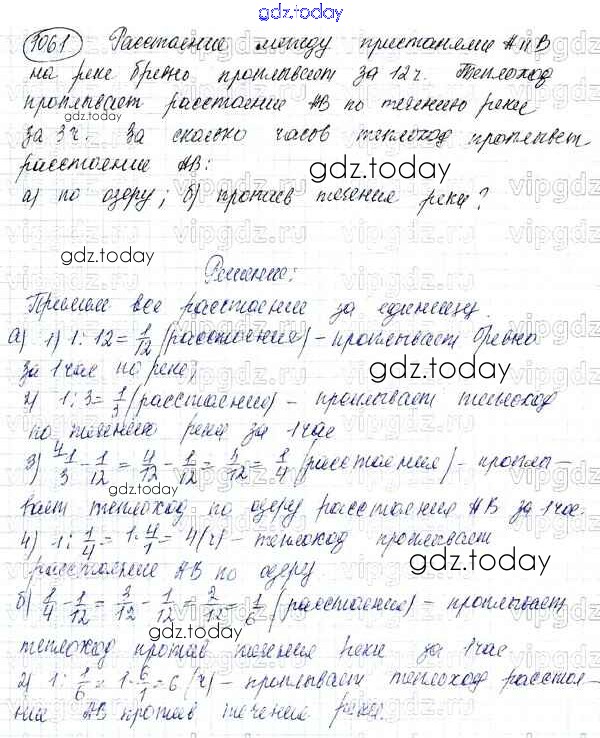 gdz.today
1061 Расстояние между пристанями А и В
на реке бревно проплывает за 12 ч. Теплоход
проплывает расстояние АВ по течению реки
за 3 ч. За сколько часов теплоход проплывет
расстояние АВ:
gdz.today
а) по озеру; б) против течения реки?
gdz.today
Решение:
Примем все расстояние за единицу.
а) 1) 1:12 = 1/12 (расстояния) - проплывает бревно
за 1 час по реке;
gdz.today
2) 1:3 = 1/3 (расстояния) - проплывает теплоход
по течению реки за 1 час
3) 4 1/3 - 1/12 = 4/12 - 1/12 = 3/12 = 1/4 (расстояния) - проплы-
gdz.today
вает теплоход по озеру расстояния АВ за 1 час.
4) 1 : 1/4 = 1 · 4/1 = 4 (ч) - теплоход проплывает
gdz.today
расстояние АВ по озеру
б) 1/4 - 1/12 = 3/12 - 1/12 = 2/12 = 1/6 (расстояния) - проплывает
gdz.today
теплоход против течения реки за 1 час.
2) 1 : 1/6 = 1 · 6/1 = 6 (ч) - проплывает теплоход расстоя-
ние АВ против течения реки.
gdz.today